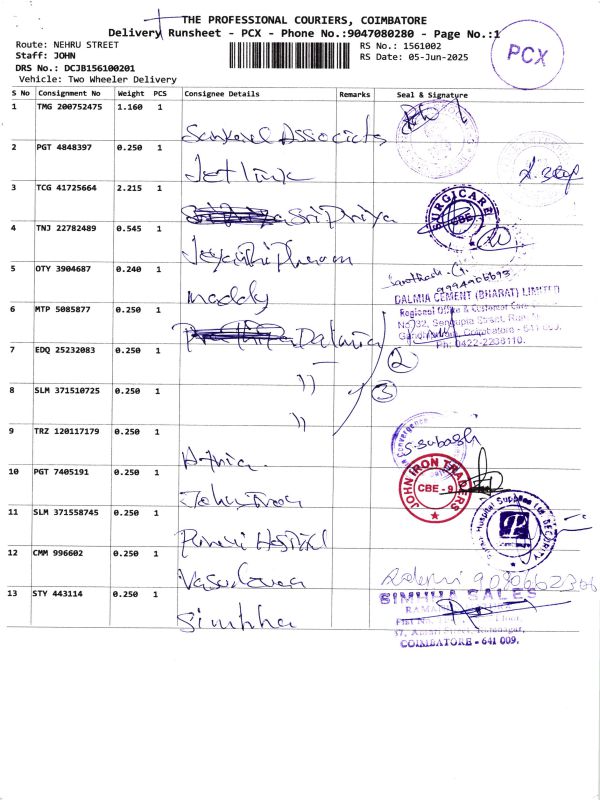 THE PROFESSIONAL COURIERS, COIMBATORE
Delivery Runsheet - PCX - Phone No.:9047080280 - Page No.:1
Route: NEHRU STREET
RS No.: 1561002
Staff: JOHN
RS Date: 05-Jun-2025
DRS No.: DCJB156100201
Vehicle: Two Wheeler Delivery
PCX
S No Consignment No Weight PCS Consignee Details Remarks Seal & Signature
1 TMG 200752475 1.160 1
2 PGT 4848397 0.250 1 Jetlink
3 TCG 41725664 2.215 1 Sri Priya
SURGICARE
CBE
4 TNJ 22782489 0.545 1
5 OTY 3904687 0.240 1 maddy
9994906693
DALMIA CEMENT (BHARAT) LIMITED
Regional Office & Customer Care
6 MTP 5085877 0.250 1 Dalmia
Coimbatore - 641
Ph: 0422-2236110.
7 EDQ 25232083 0.250 1 ))
2
8 SLM 371510725 0.250 1 ))
3
9 TRZ 120117179 0.250 1
S. Subash
10 PGT 7405191 0.250 1
JOHN IRON TRADERS
CBE - 9
11 SLM 371558745 0.250 1 Hospital
Hospital Supplies
SECURITY
12 CMM 996602 0.250 1
13 STY 443114 0.250 1 Simhha
SIMHHA SALES
COIMBATORE - 641 009.